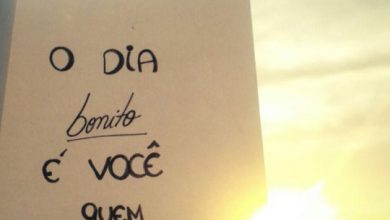 O DIA
bonito
É VOCÊ
QUEM